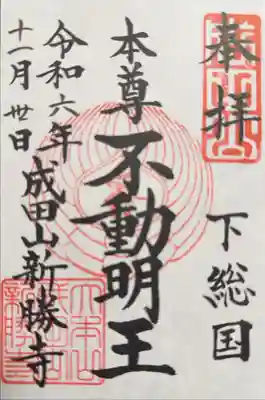 奉拝
下総国
本尊
不動明王
令和六年
十一月丗日
成田山新勝寺